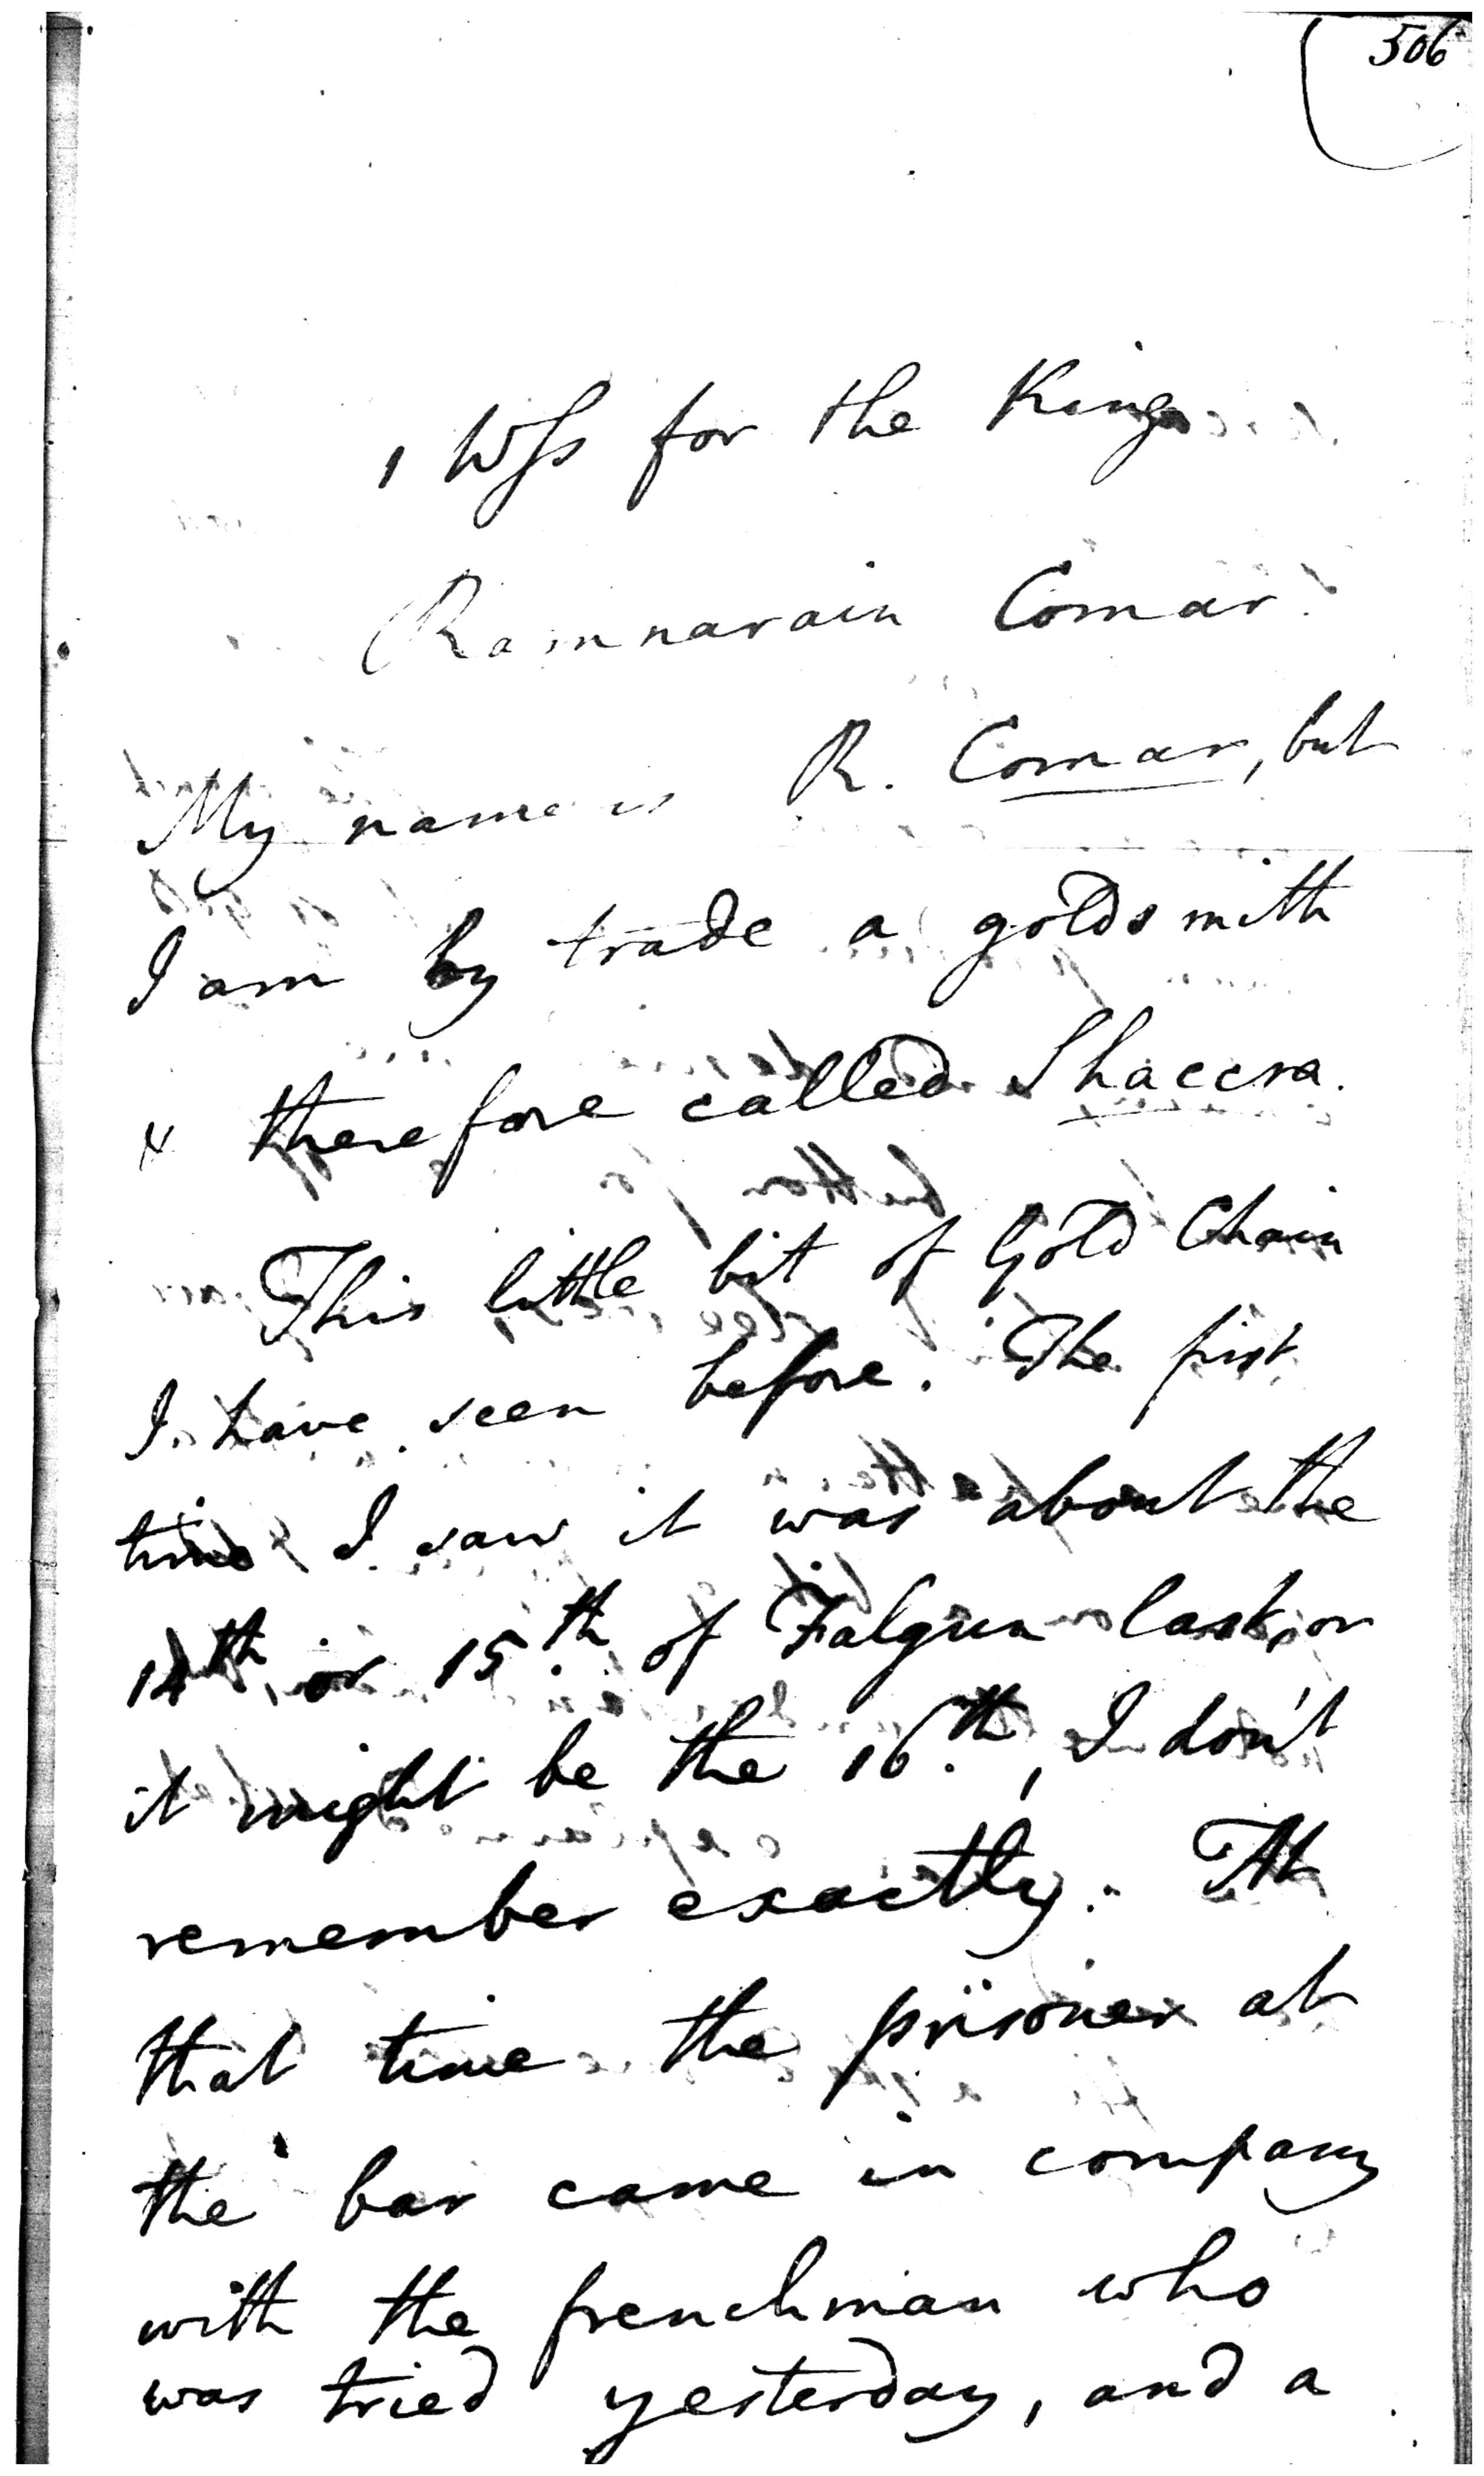 506
1 Wss for the King
Ramnarain Comar.
My name is R. Comar, but
I am by trade a goldsmith
& therefore called Shaccra.
This little bit of Gold Chain
I have seen before. The first
time I saw it was about the
14th or 15th of Falgun last, or
it might be the 16th, I don't
remember exactly. At
that time the prisoner at
the bar came in company
with the frenchman who
was tried yesterday, and a